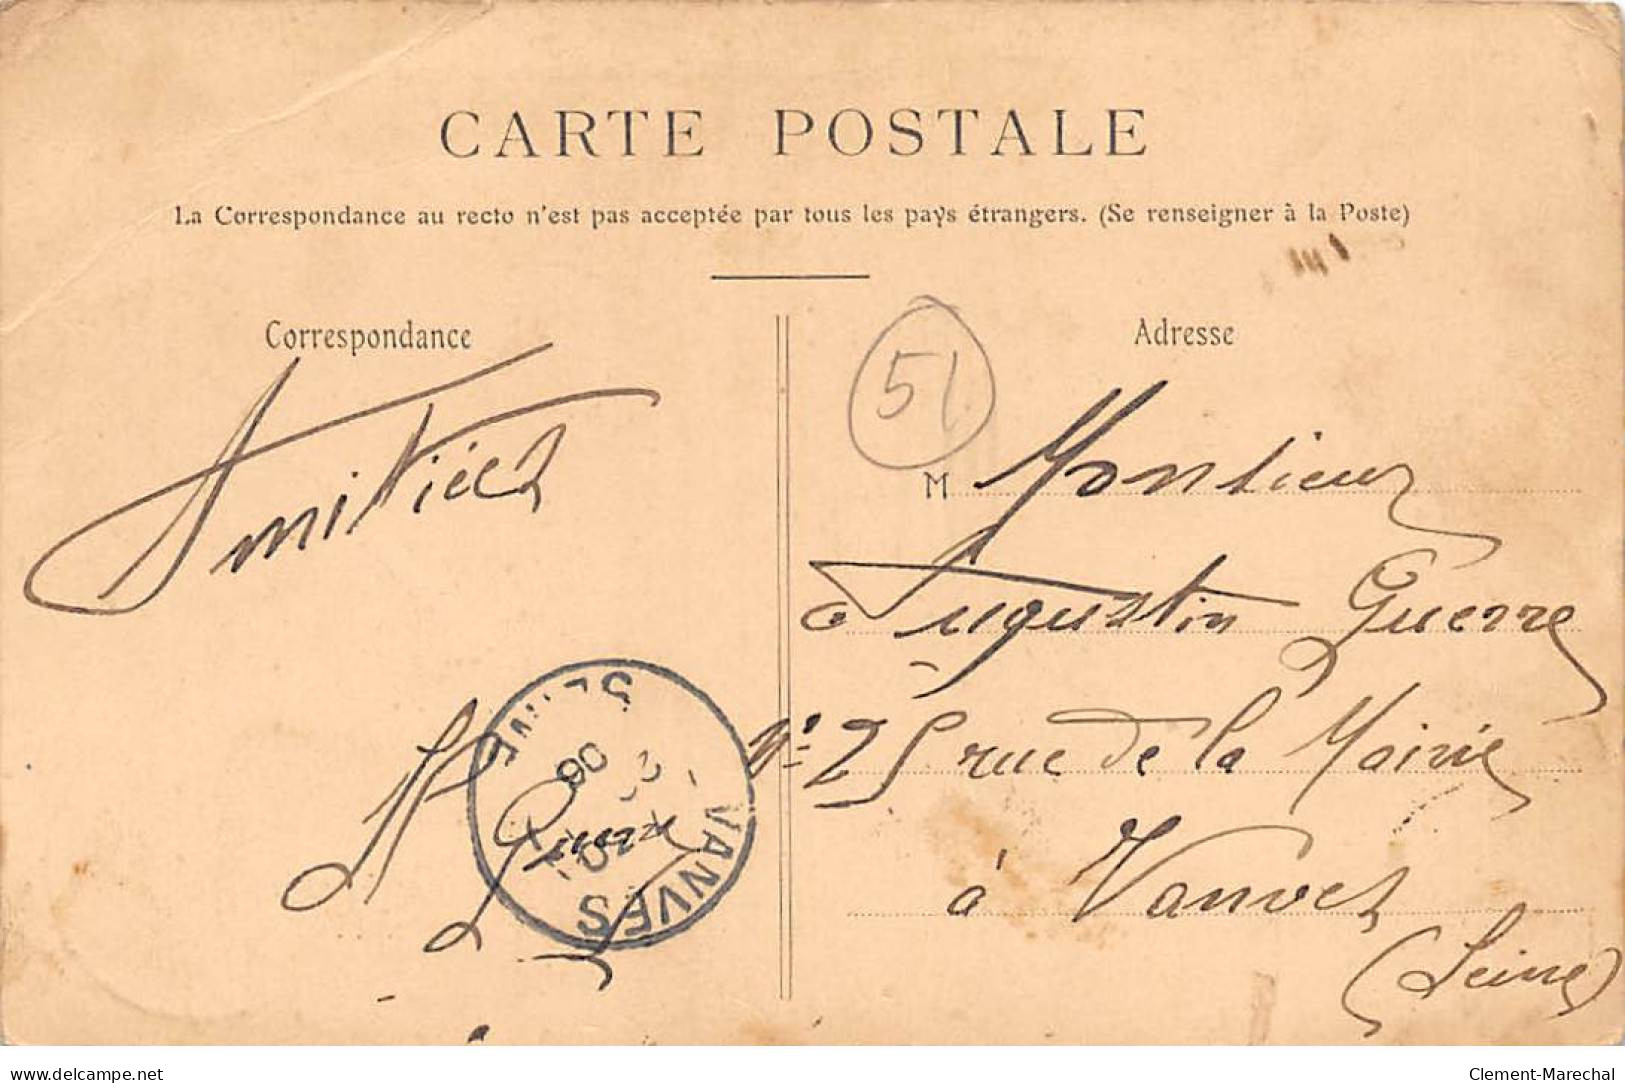 CARTE POSTALE
La Correspondance au recto n'est pas acceptée par tous les pays étrangers. (Se renseigner à la Poste)
Correspondance
Amitiés
Guerre
SEINE
06
VANVES
Adresse
51
M Monsieur
Augustin Guerre
N° 25 rue de la Mairie
à Vanves
(Seine)
www.delcampe.net
Clement-Marechal